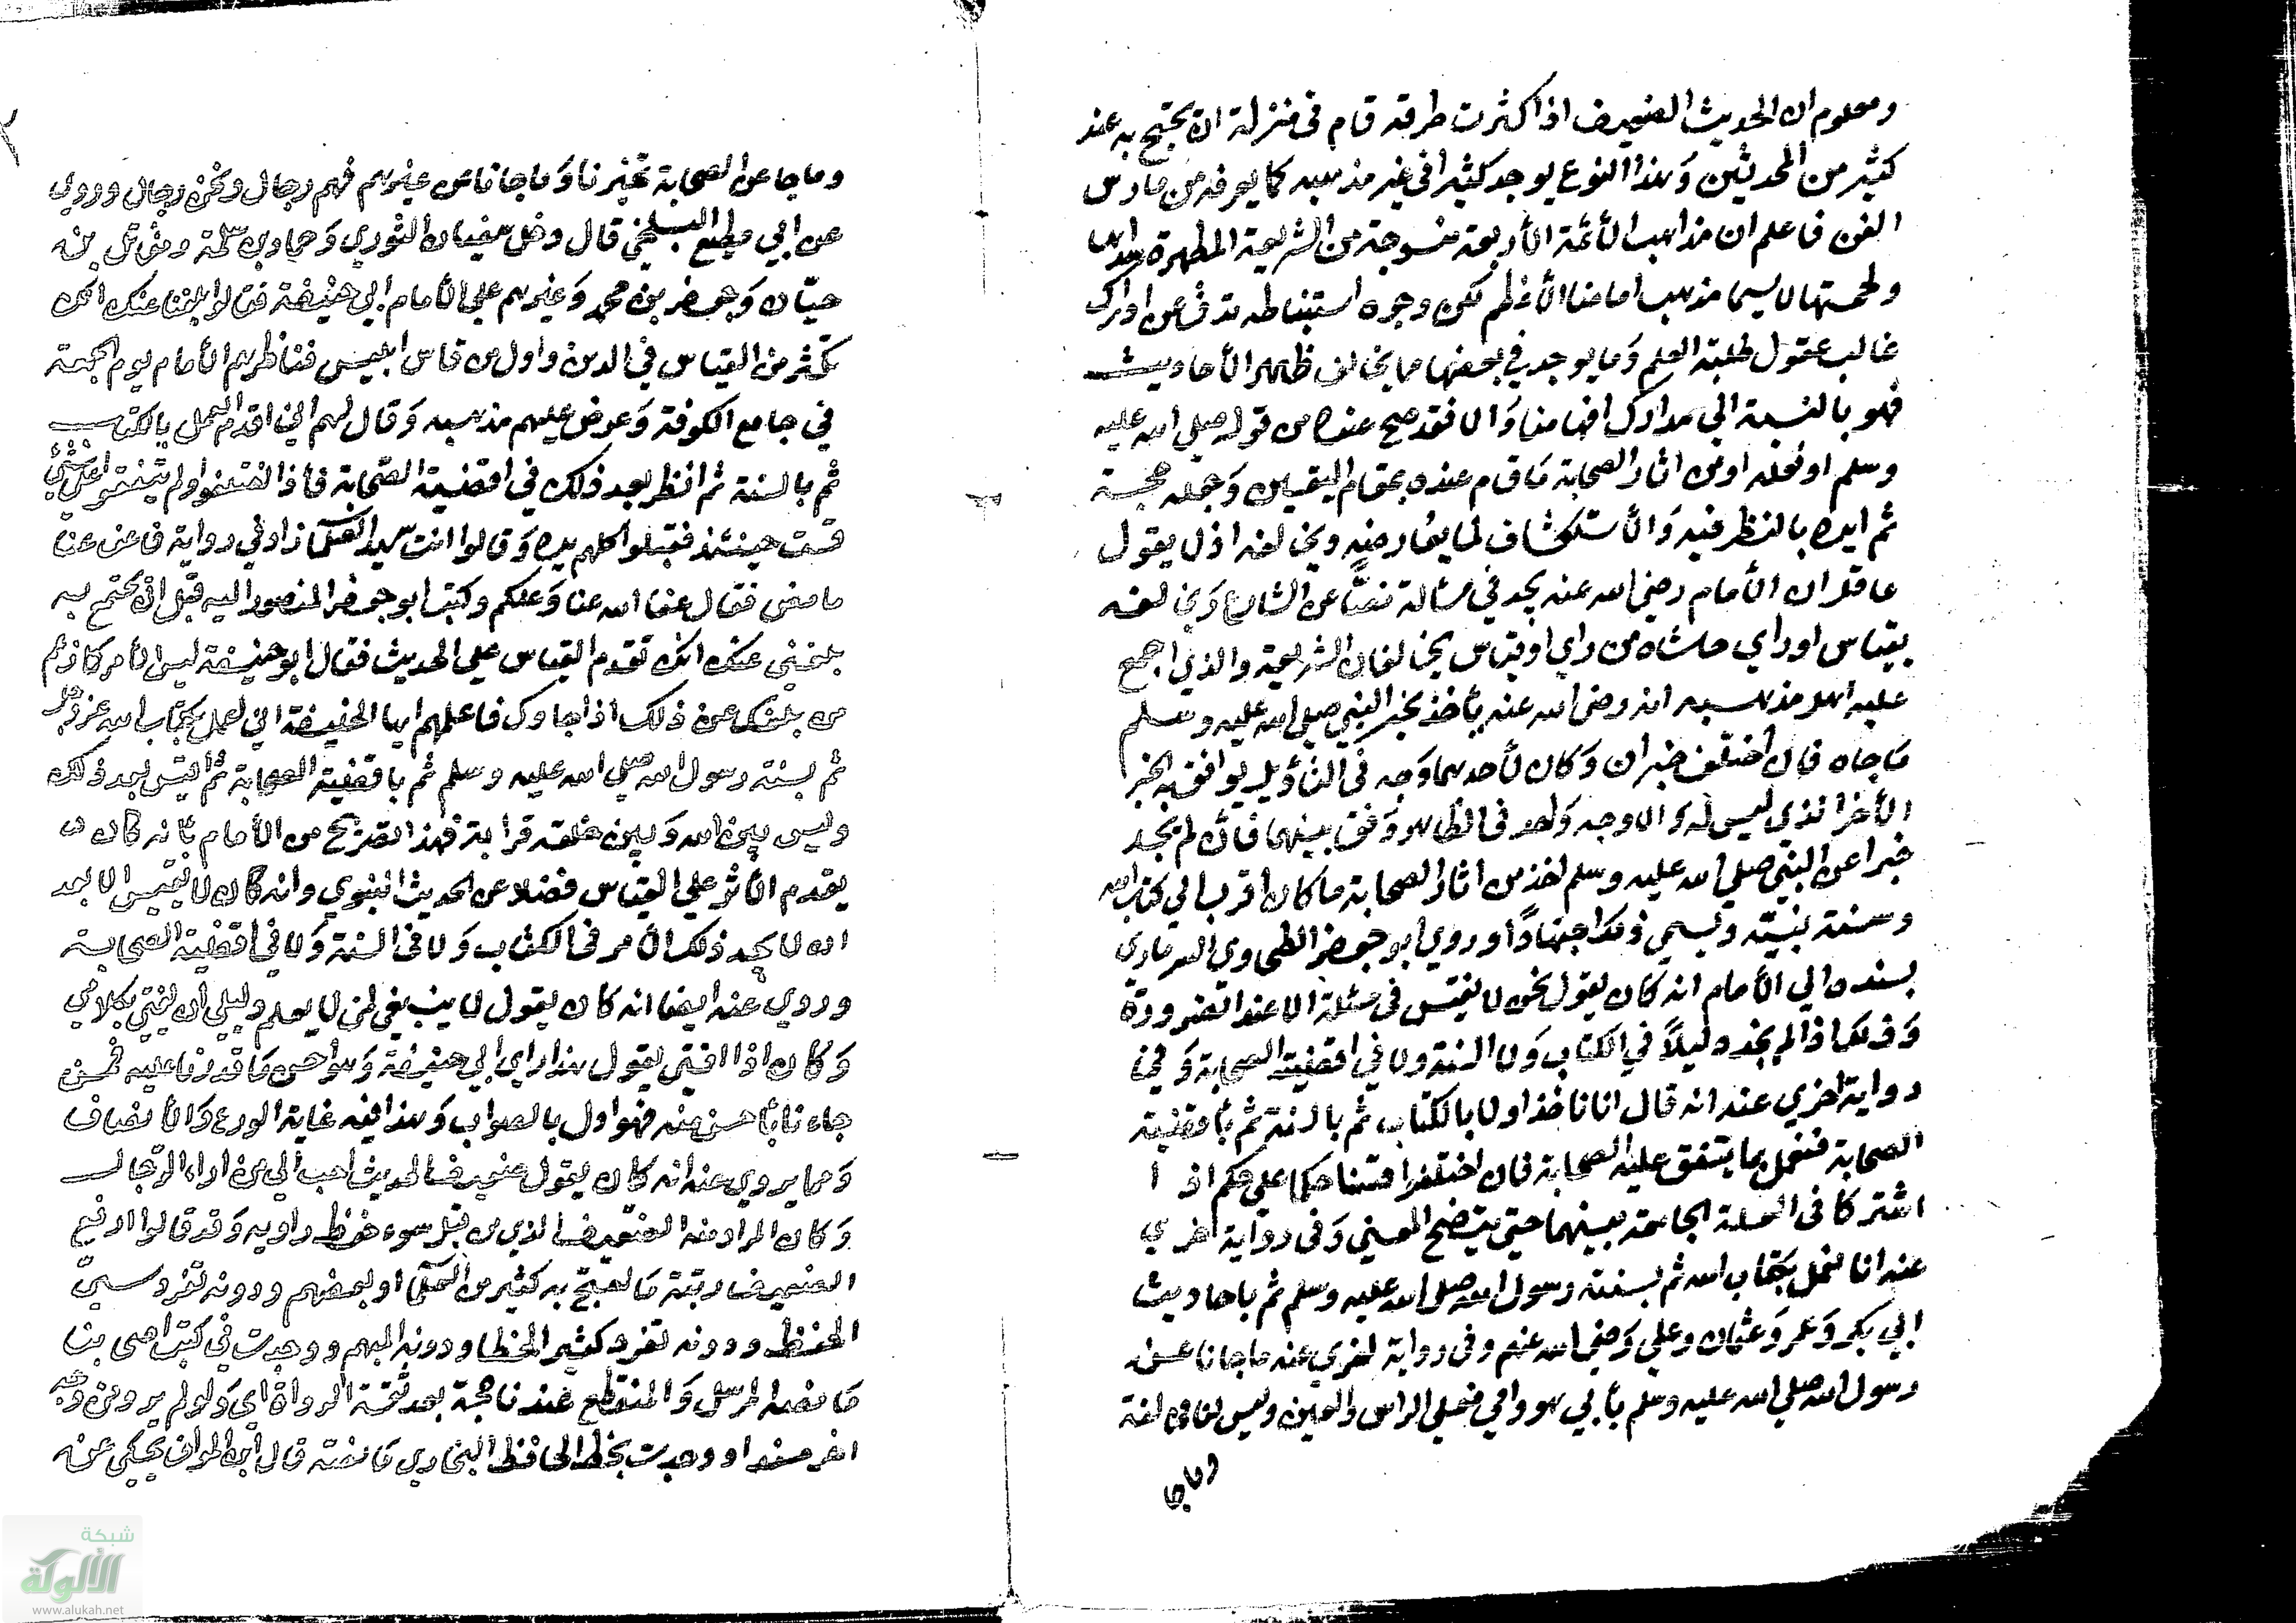 ومعلوم ان الحديث الضعيف اذا كثرت طرقه قام في منزلة ان يحتج به عند
كثير من المحدثين وَهذا النوع يوجد كثيرا في غير مذهبه كما يعرفه من مارس
الفن فاعلم ان مذاهب الأئمة الأربعة منسوجة من الشريعة المطهرة سداها
ولحمتها لا سيما مذهب امامنا الأعظم لكن وجوه استنباطه تدق عن ادراك
غالب عقول طلبة العلم وَما يوجد في بعضها مما يخالف ظهر الأحاديث
فهو بالنسبة الي مدارك افهامنا وَالا فقد صح عنده من قوله صلي الله عليه
وسلم او فعله او من اثار الصحابة مَا قام عنده بمقام اليقين وَجعله حجة
ثم ايده بالنظر فيه وَالأستكشاف لما يعارضه ويخالفه اذ لا يقول
عاقل ان الأمام رضي الله عنه يجد في مسالة نصًّا عن الشارع وَيخالفه
بقياس او راي حاشاه من راي او قياس يخالفان الشريعة والذي اجمع
عليه اهل مذهبه انه رضي الله عنه يأخذ بخبر النبي صلي الله عليه وسلم
مَا جاه فان اختلف خبران وَكان لأحدهما وَجه في التأويل يوافق به الخبر
الأخر الذي ليس له الا وجه وَاحد في الظاهر وَفق بينهما فأن لم يجد
خبرا عن النبي صلي الله عليه وسلم اخذ من اثار الصحابة ما كان اقرب الي كتاب الله
وسنة نبيّه ويسمي ذلك اجتهادًا وروي ابو جعفر الطحاوي السرماري
بسنده الي الأمام انه كان يقول نحن لا نقيس في مسئلة الا عند الضرورة
وَذلك اذا لم نجد دليلاً في الكتاب وَلا السنة ولا في اقضية الصحابة وَفي
رواية اخري عنه انه قال انا ناخذ اولا بالكتاب ثم بالسنة ثم بأقضية
الصحابة فنعمل بما يتفق عليه الصحابة فان اختلفوا قسنا حكما علي حكم اذا
اشتركا في العلة الجامعة بينهما حتي يتضح المعني وَفي رواية اخري
عنه انا نعمل بكتاب الله ثم بسنة رسول الله صلي الله عليه وسلم ثم باحاديث
ابي بكر وَعمر وَعثمان وعلي رَضي الله عنهم وفي رواية اخري عنه ما جانا عن
رسول الله صلي الله عليه وسلم بأبي هو وامي فعلي الراس والعين وليس لنا مخالفة
وما جا
وما جا عن الصحابة تخيرنا وَما جانا عن غيرهم فهم رجال ونحن رجال وروي
عن ابي مطيع البلخي قال دخل سفيان الثوري وَحماد بن سلمة ومقاتل بن
حيّان وَجعفر بن محمد وَغيرهم علي الأمام ابي حنيفة فقالوا بلغنا عنك انك
تكثر من القياس في الدين واول من قاس ابليس فناظرهم الأمام يوم الجمعة
في جامع الكوفة وَعرض عليهم مذهبه وَقال لهم اني اقدم العمل بالكتاب
ثم بالسنة ثم انظر بعد ذلك في اقضية الصّحابة فاذا اختلفوا ولم يتفقوا علي شيء
قست حينئذ فقبلوا كلهم يده وَقالوا انت سيد العلما زاد في رواية فاعف عنا
ما مضي فقال عفا الله عنا وَعنكم وكتب ابو جعفر المنصور اليه قبل ان يجتمع به
بلغني عنك انك تقدم القياس علي الحديث فقال ابو حنيفة ليس الأمر كما زعم
من بلغك عن ذلك اذا جاوك فاعلمهم ايها الخليفة اني اعمل بكتاب الله عز وجل
ثم بسنة رسول الله صلي الله عليه وسلم ثم باقضية الصحابة ثم اقيس بعد ذلك
وليس بين الله وَبين خلقه قرابة فهذا تصريح من الأمام بأنه كان
يقدم الأثر علي القياس فضلا عن الحديث النبوي وانه كان لا يقيس الا بعد
ان لا يجد ذلك الأمر في الكتاب وَلا في السنة وَلا في اقضية الصحابة
وروي عنه ايضا انه كان يقول لا ينبغي لمن لا يعلم دليلي ان يفتي بكلامي
وَكان اذا افتي يقول هذا راي ابي حنيفة وَهو احسن مَا قدرنا عليه فمن
جاءنا بأحسن منه فهو اولي بالصواب وَهذا فيه غاية الورع وَالأنصاف
وَمما يروي عنه انه كان يقول ضعيف الحديث احب الي من اراء الرّجال
وَكان المراد منه الضعيف الذي من قبل سوء حفظ راويه وَقد قالوا ارفع
الضعيف رتبة مَا يحتج به كثير من العلما او بعضهم ودونه تفرد سيئ
الحفظ ودونه تفرد كثير الخطا ودونه المبهم ووجدت في كتب اصحابنا
مَا نصه المرسل وَالمنقطع عندنا حجة بعد ثقة الرواة اي وَلو لم يرو من وجه
اخر مسندا ووجدت بخط الحافظ البخاري مَا نصه قال ابن الموان يحكي عن
شبكة
الألوكة
www.alukah.net